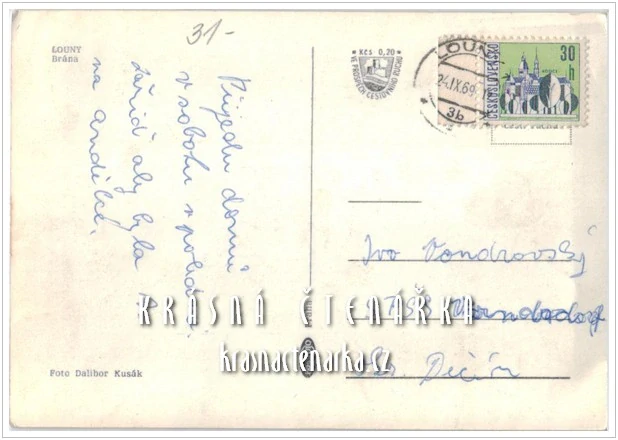 31-
LOUNY
Brána
Kčs 0,20
VE PROSPĚCH CESTOVNÍHO RUCHU
LOUNY
24.IX.69
3b
ČESKOSLOVENSKO
30
h
Přijedu domů
v sobotu v poledne.
Zařiď aby byla
na
Ivo Vondrovský
Varnsdorf
Děčín
KRÁSNÁ ČTENÁŘKA
krasnactenarka.cz
Foto Dalibor Kusák